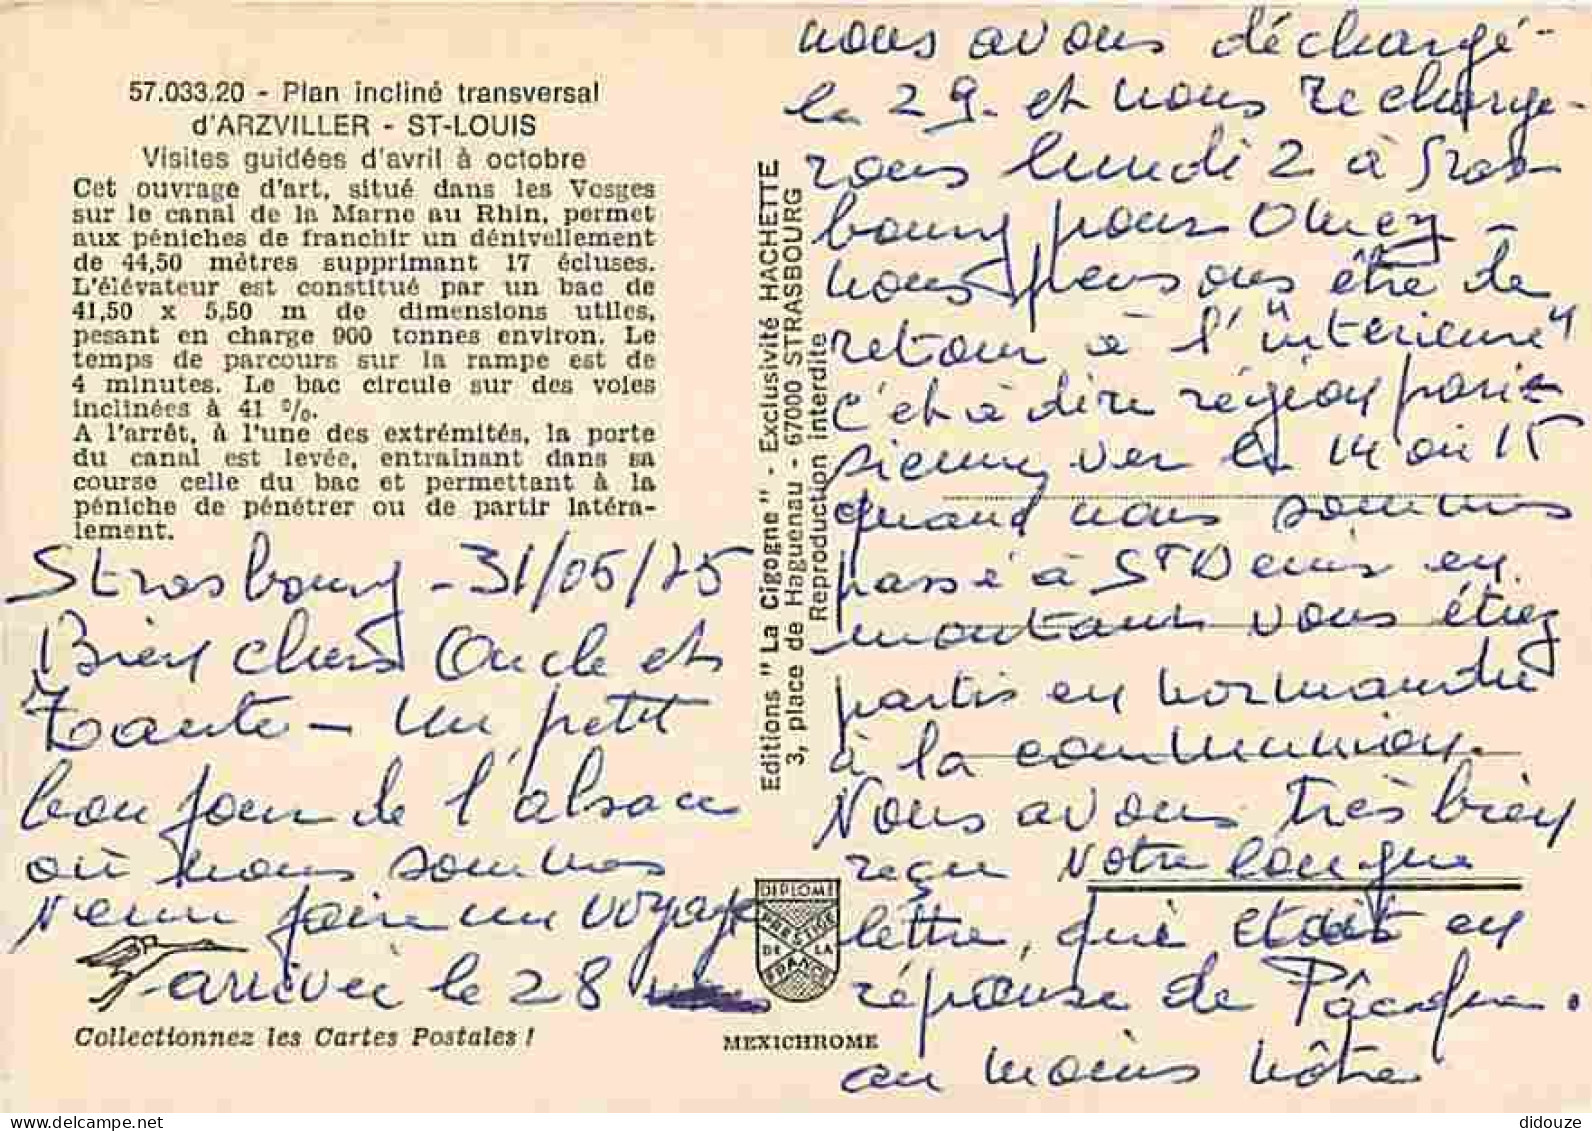 57.033.20 - Plan incliné transversal
d'ARZVILLER - ST-LOUIS
Visites guidées d'avril à octobre
Cet ouvrage d'art, situé dans les Vosges
sur le canal de la Marne au Rhin, permet
aux péniches de franchir un dénivellement
de 44,50 mètres supprimant 17 écluses.
L'élévateur est constitué par un bac de
41,50 x 5,50 m de dimensions utiles,
pesant en charge 900 tonnes environ. Le
temps de parcours sur la rampe est de
4 minutes. Le bac circule sur des voies
inclinées à 41 %.
A l'arrêt, à l'une des extrémités, la porte
du canal est levée, entrainant dans sa
course celle du bac et permettant à la
péniche de pénétrer ou de partir latéra-
lement.
Strasbourg - 31/05/75
Bien chers Oncle et
Tante - un petit
bonjour de l'alsace
où nous sommes
venu faire un voyage
arrivée le 28
Collectionnez les Cartes Postales !
Editions "La Cigogne" - Exclusivité HACHETTE
3, place de Haguenau - 67000 STRASBOURG
Reproduction interdite
DIPLOME
PRESTIGE
DE LA
FRANCE
MEXICHROME
nous avons déchargé
le 29. et nous recharge-
rons lundi 2 à Stras
bourg pour
nous pensons être de
retour à l'"intérieure"
c'et à dire région pari-
sienny ver le 14 ou 15
quand nous sommes
passé à St Denis en
montant vous étiez
partis en normandie
à la communion.
Nous avons très bien
reçu votre longue
lettre, qui etait en
réponse de Pâcque.
au moins nôtre